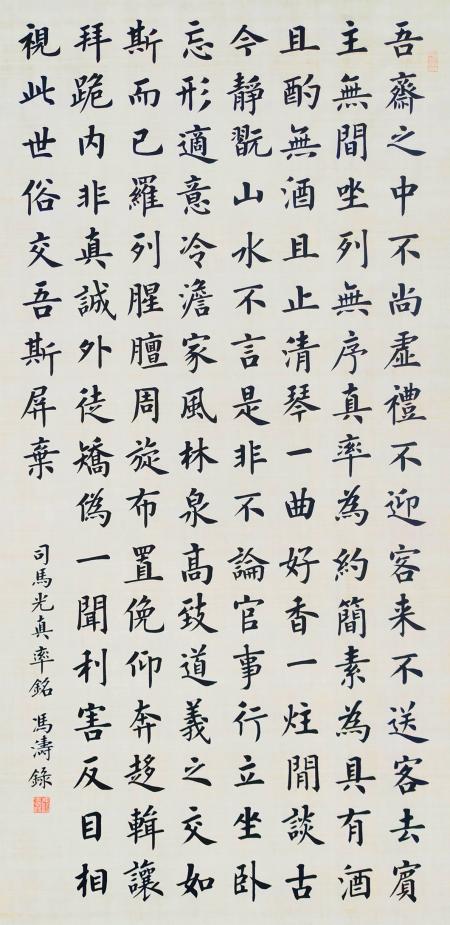 吾齋之中不尚虛禮不迎客来不送客去賓
主無間坐列無序真率為約簡素為具有酒
且酌無酒且止清琴一曲好香一炷閒談古
今靜翫山水不言是非不論官事行立坐卧
忘形適意冷澹家風林泉髙致道義之交如
斯而已羅列腥膻周旋布置俛仰奔趍輯讓
拜跪内非真誠外徒矯偽一聞利害反目相
視此世俗交吾斯屏棄
司馬光真率銘 馮濤錄